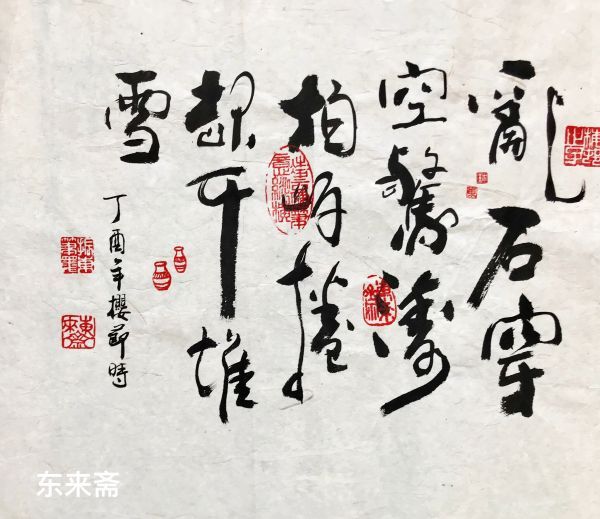 亂石穿
空驚濤
拍岸捲
起千堆
雪
丁酉年櫻節時
东来斋